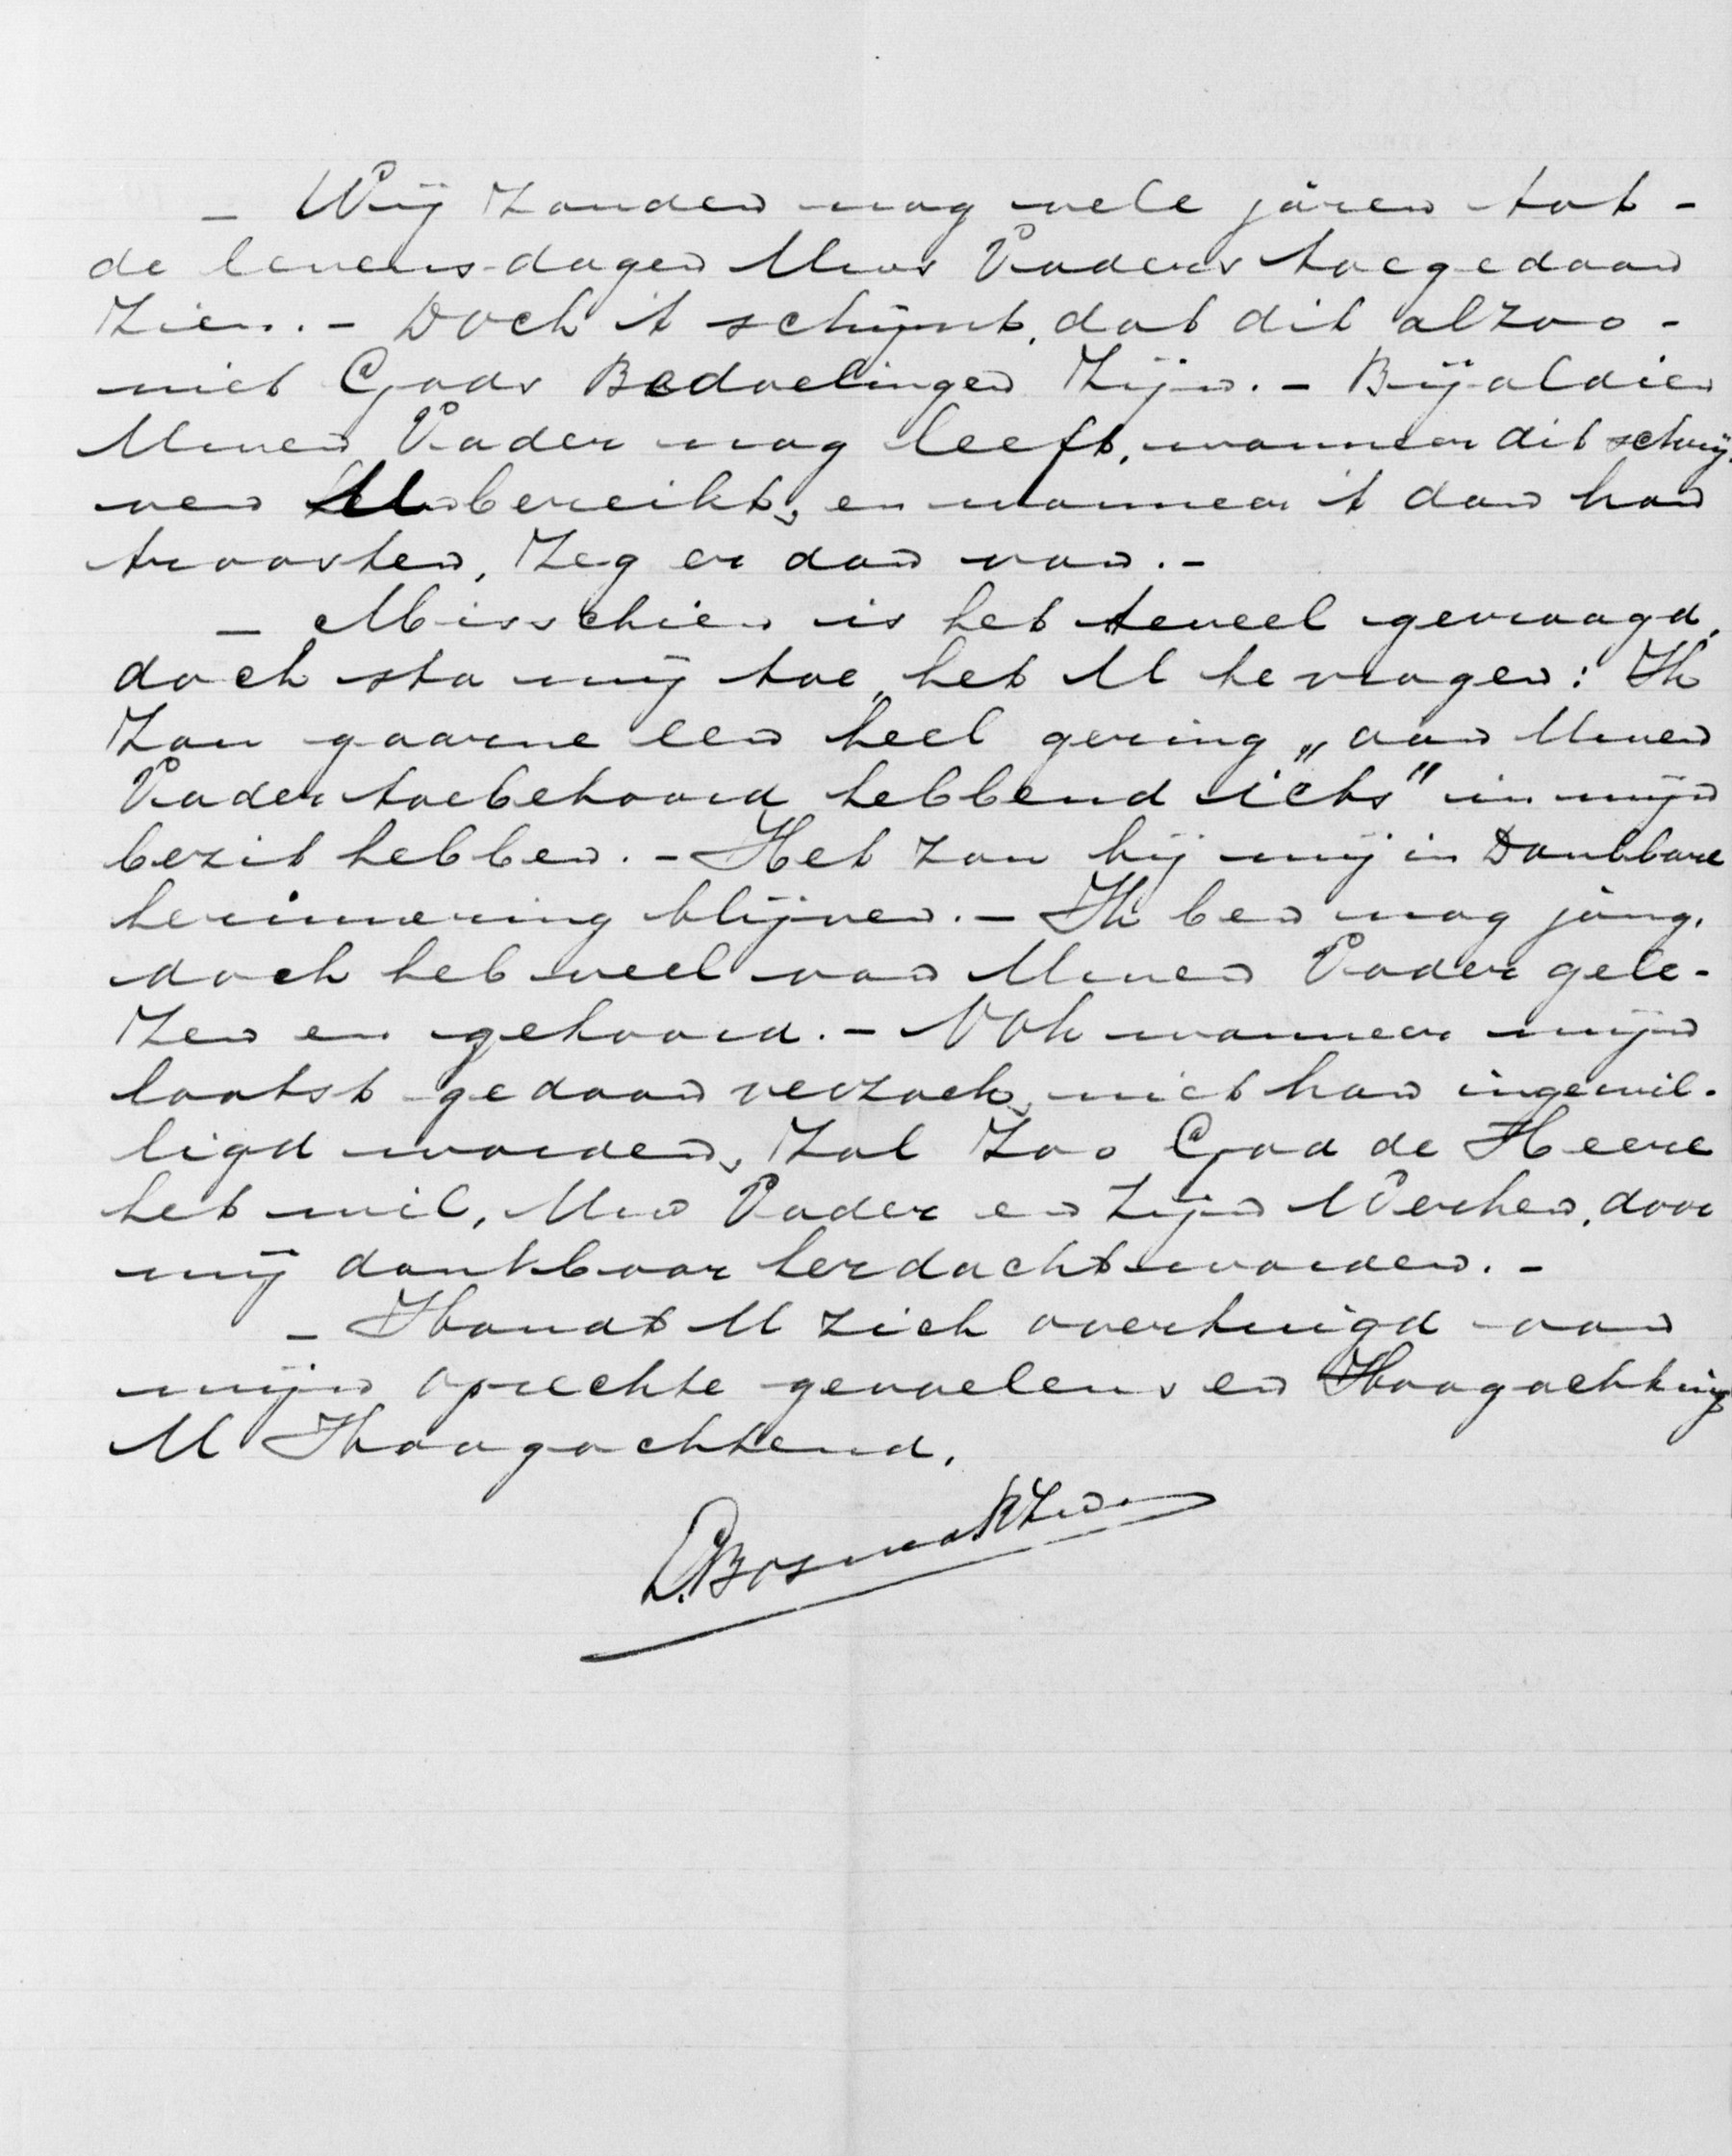 – Wij zouden nog vele jaren tot –
de levens-dagen Uws Vaders toegedaan
zien. – Doch 't schijnt, dat dit alzoo –
niet Gods Bedoelingen zijn. – Bijaldien
Uwen Vader nog leeft, wanneer dit schrij-
ven U bereikt, en wanneer 't dan kan
troosten, zeg er dan van. –
– Misschien is het teveel gevraagd,
doch sta mij toe, het U te vragen: Ik
zou gaarne een heel gering „aan Uwen
Vader toebehoord hebbend iets" in mijn
bezit hebben. – Het zou bij mij in Dankbare
herinnering blijven. – Ik ben nog jong,
doch heb veel van Uwen Vader gele-
zen en gehoord. – Ook wanneer mijn
laatst gedaan verzoek, niet kan ingewil-
ligd worden, zal zoo God de Heere
het wil, Uw Vader en zijn Werken, door
mij dankbaar herdacht worden. –
– Houdt U zich overtuigd van
mijn oprechte gevoelens en Hoogachting
U Hoogachtend,
D. Bosma RZn.